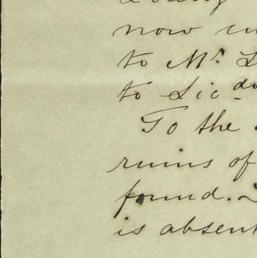 now
to Mr. L
to Licdo
To the
ruins of
found.
is absent